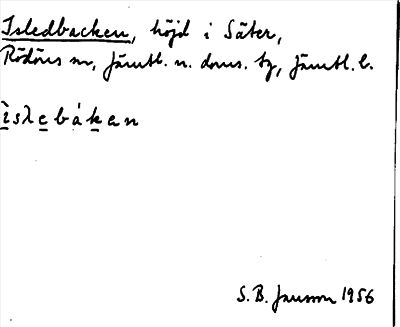 Isledbacken, höjd i Säter,
Rödöns sn, Jämtl. n. doms. tg, Jämtl. l.
ìsλebákan
S. B. Jansson 1956